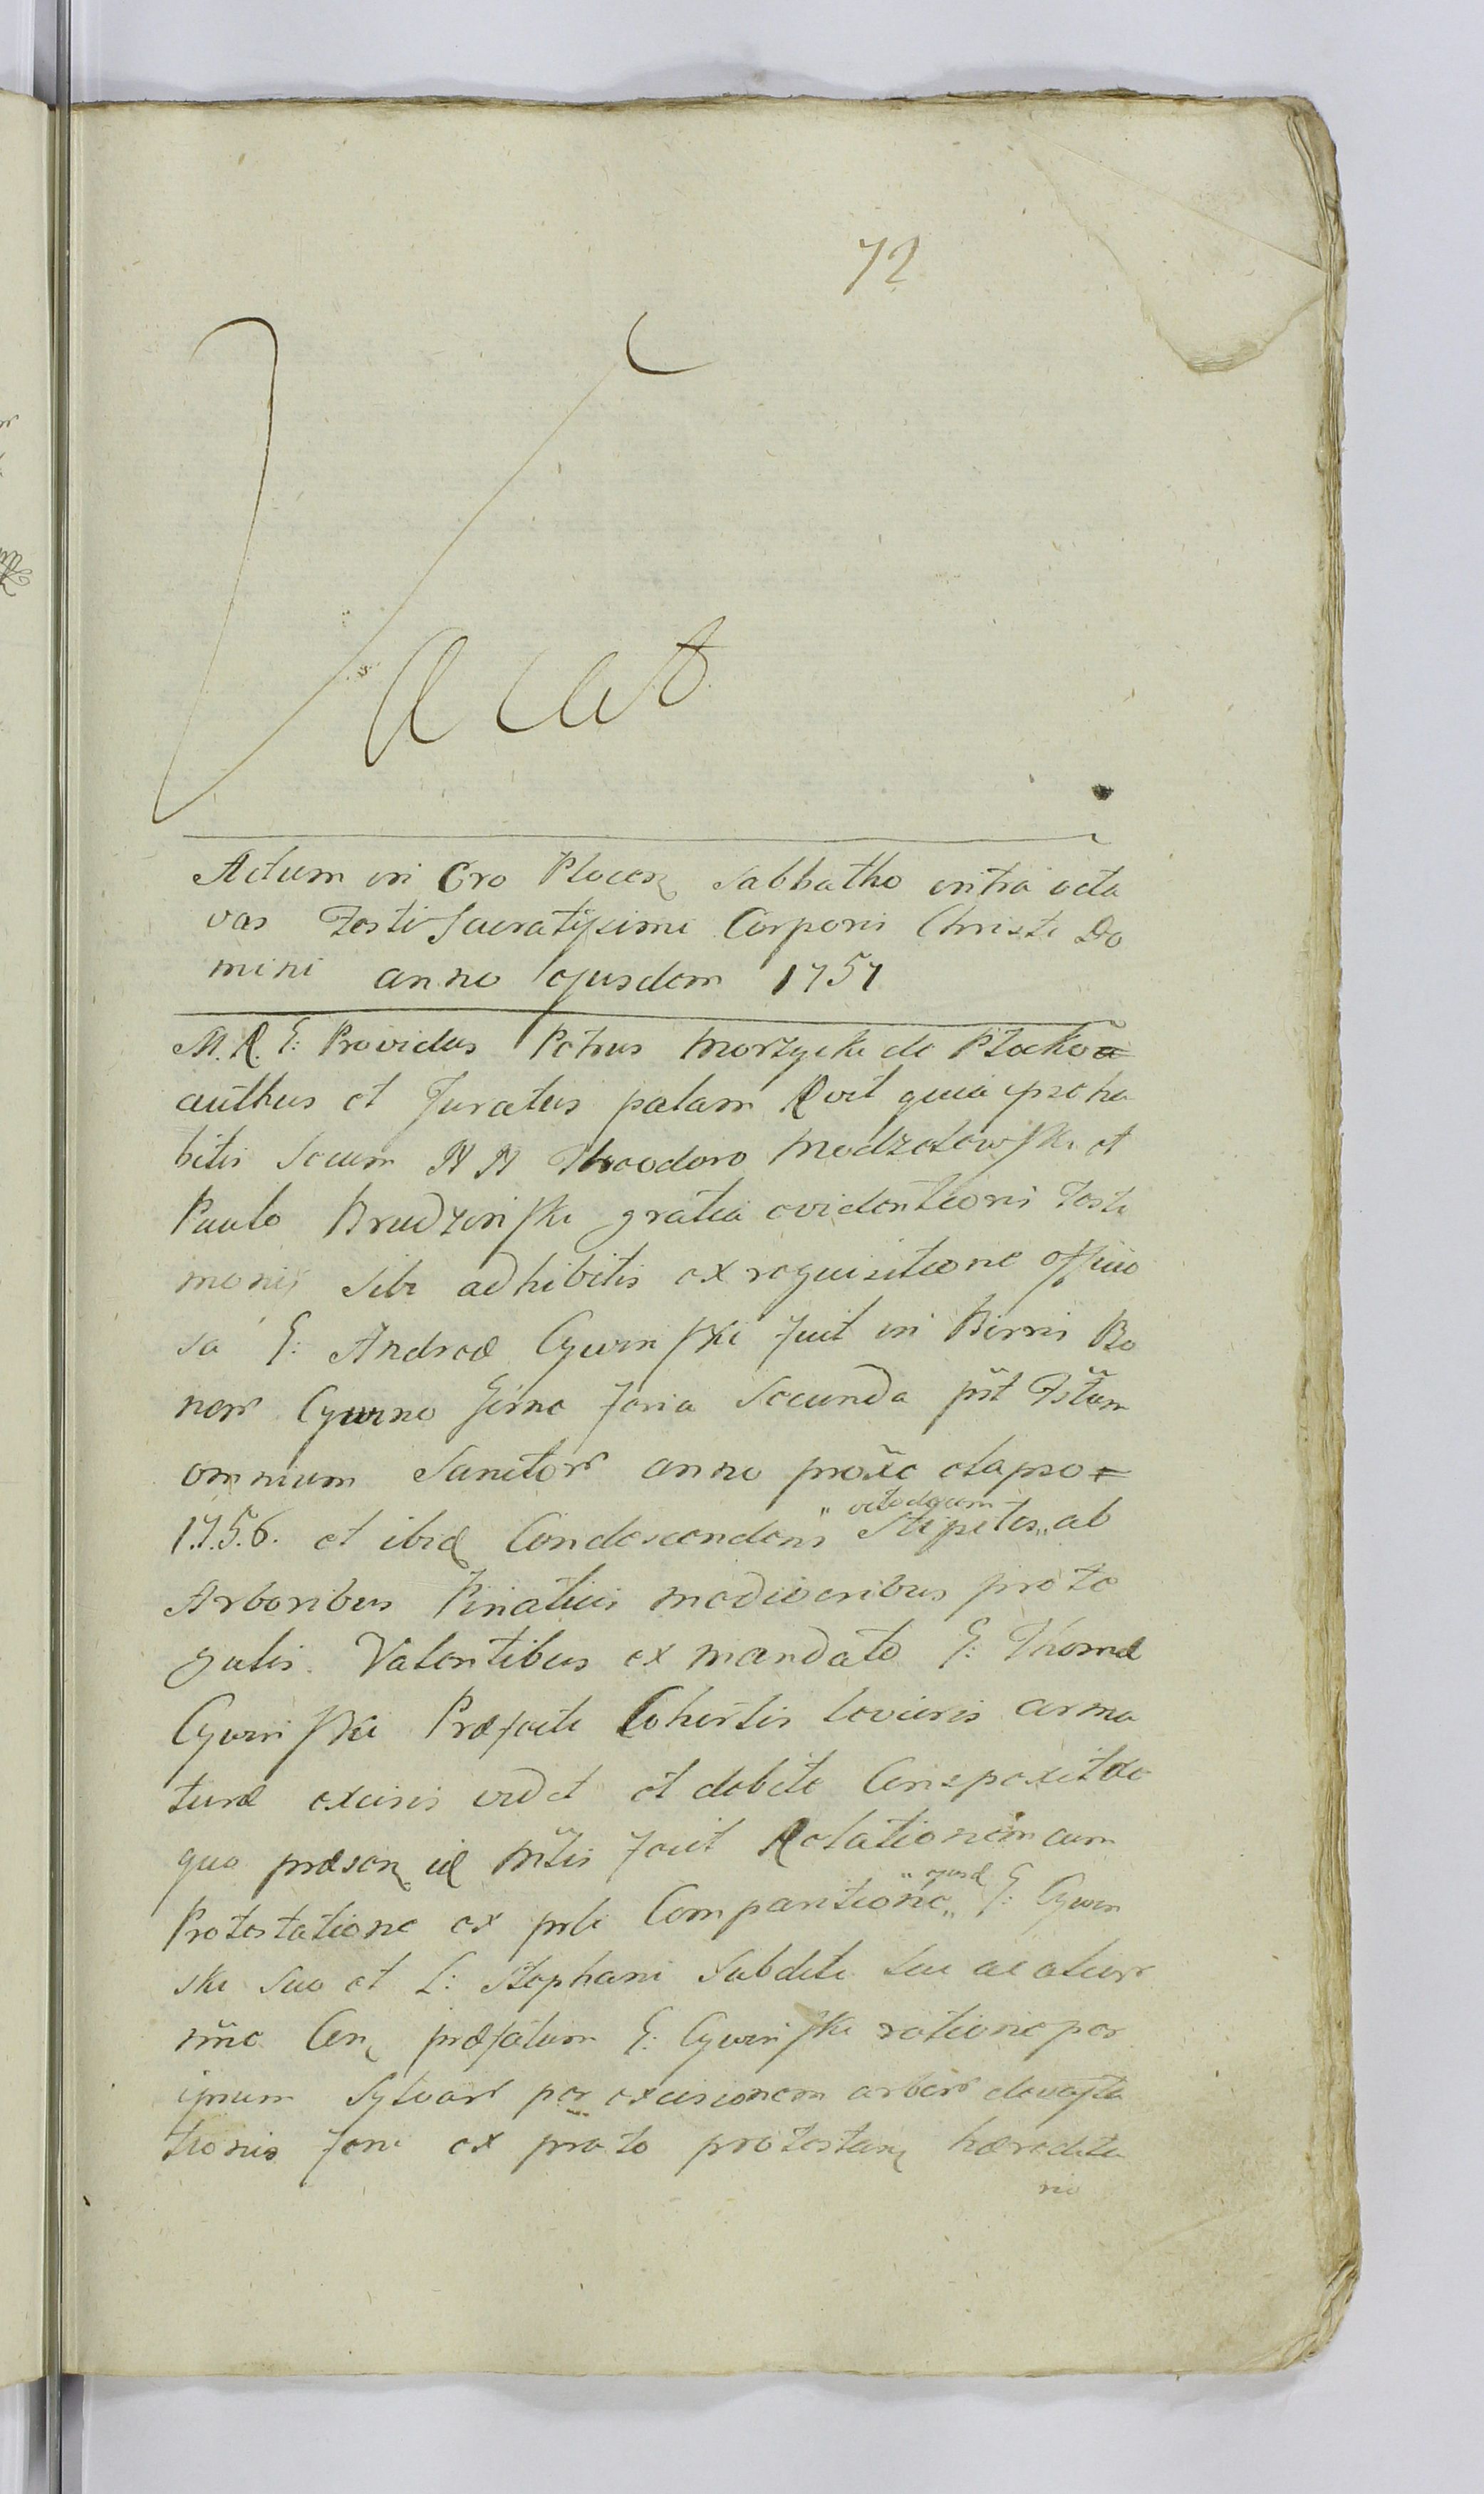 72
Vacat
Actum in Cro Plocen Sabbatho intra octa
vas Festi Sacratissimi Corporis Christi Do
mini anno ejusdem 1757
M. R. G: Providus Petrus Morzycki de Płocko =
authus et Juratus palam Rvit quia ipse ha
bitis Secum NN Theodoro Modzelewski et
Paulo Brudzinski gratia evidentioris Testi
monij Sibi adhibitis ex requisitione officio
sa G: Andreæ Cywinski fuit in Bonis Bo
nor Cywino Girne feria Secunda pst Fstum
omnium Sanctor anno proxe elapso =
1.7.5.6. et ibid Condescendens Stipites „octodecim„ ab
Arboribus Pinaticis mediocribus pro te
gulis Valentibus ex mandato G: Thomæ
Cywinski Præfecti Cohortis levioris arma
turæ excisis vidit et debite Conspexit de
quo præsen id Mtis fecit Relationem cum
Protestatione ex prbi Comparitione „ejusd„ G: Cywin
ski Suo et L: Stephani Subditi sui ac alior
nne Con præfatum G: Cywinski ratione per
ipsum Sylvar per excisionem arbor devasta
tionis fone ex prato protestan hæredita
rio